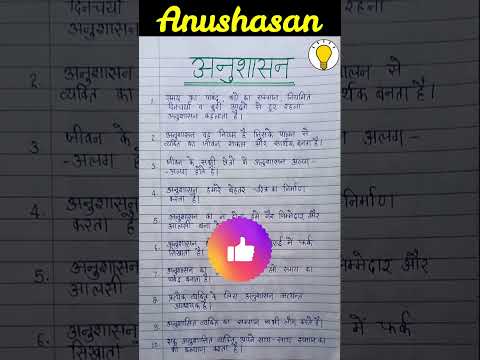 Anushasan
अनुशासन
1. समय का पाबंद, बड़ों का सम्मान, नियमित
दिनचर्या व बुरी आदतों से दूर रहना
अनुशासन कहलाता है।
2. अनुशासन वह नियम है जिसके पालन से
व्यक्ति का जीवन सफल और सार्थक बनता है।
3. जीवन के सभी क्षेत्रों में अनुशासन अलग-
-अलग होते हैं।
4. अनुशासन हमारे बेहतर चरित्र का निर्माण
करता है।
5. अनुशासन का न होना हमें गैर जिम्मेदार और
आलसी बना
6. में फर्क
सिखाता है।
7. अनुशासन का समय का
पाबंद बनाता है।
8. प्रत्येक व्यक्ति के लिए अनुशासन अत्यन्त
आवश्यक है।
9. अनुशासित व्यक्ति का सम्मान सभी लोग करते हैं।
10. एक अनुशासित व्यक्ति अपने साथ-साथ समाज का
भी कल्याण करता है।
दिनचर्या
रहना
अनुशासन
2. अनुशासन
पालन से
व्यक्ति का
र्थक बनता है।
3. जीवन के
अलग
-अलग
4. अनुशासन
निर्माण
करता है
5.
म्मेदार और
आलसी
6.
में फर्क
सिखाता